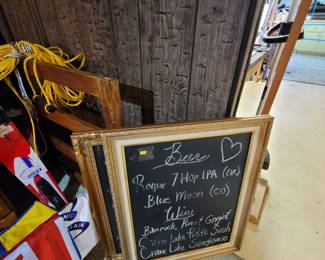 Beer
Rogue 7 Hop IPA (OR)
Blue Moon (CO)
Wine
Banrock Pinot Grigio
Crane Lake Petite Sirah
Crane Lake Sangiovese